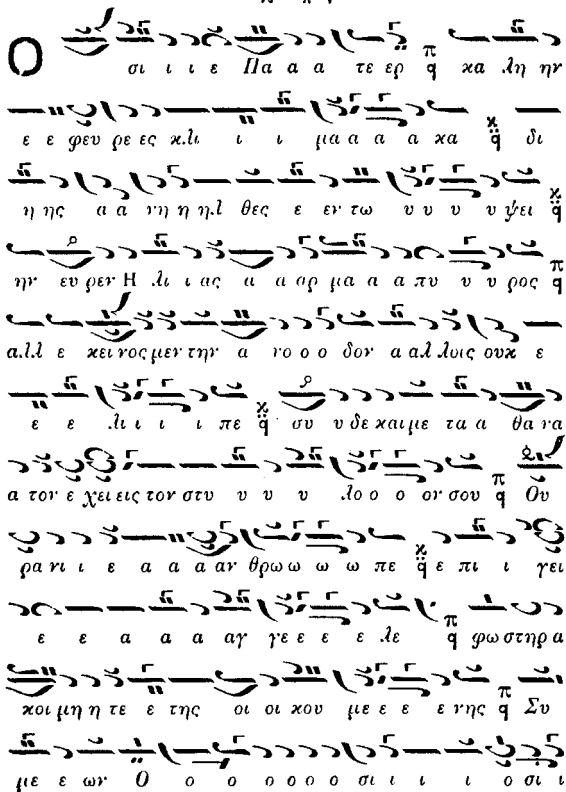 Ο σι ι ι ε Πα α α τε ερ π q κα λη ην
ε ε φευ ρε ες κλι ι ι μα α α α κα κ q δι
η ης α α νη η ηλ θες ε εν τω υ υ υ υ ψει κ q
ην ευ ρεν Η λι ι ας α α αρ μα α α πυ υ υ ρος π q
αλλ ε κει νος μεν την α νο ο ο δον α αλ λοις ουκ ε
ε ε λι ι ι ι πε κ q συ υ δε και με τα α θα να
α τον ε χει εις τον στυ υ υ υ λο ο ο ον σου π q Ου
ρα νι ι ε α α α αν θρω ω ω ω πε κ q ε πι ι γει
ε ε α α α αγ γε ε ε ε λε π q φω στηρ α
κοι μη η τε ε της οι οι κου με ε ε ε νης π q Συ
με ε ων Ο ο ο ο ο ο ο σι ι ι ι ο σι ι